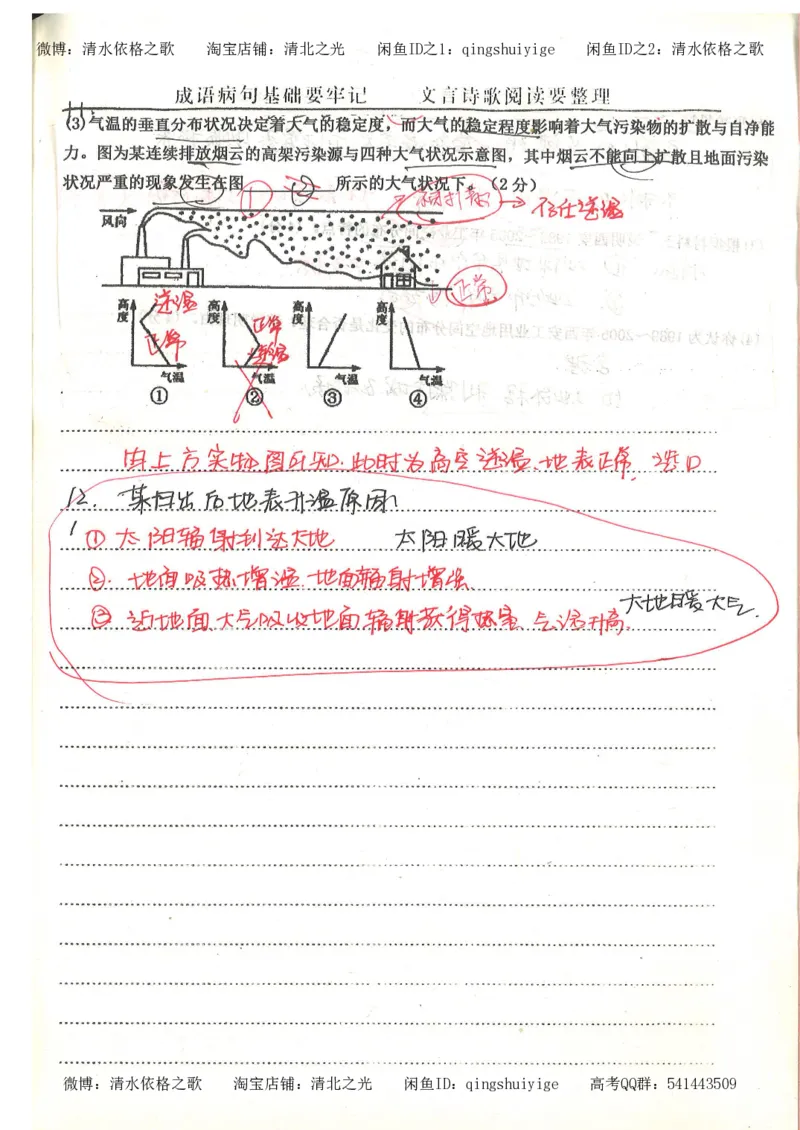 微博：清水依格之歌 淘宝店铺：清北之光 闲鱼ID之1：qingshuiyige 闲鱼ID之2：清水依格之歌
成语病句基础要牢记 文言诗歌阅读要整理
(3)气温的垂直分布状况决定着大气的稳定度，而大气的稳定程度影响着大气污染物的扩散与自净能
力。图为某连续排放烟云的高架污染源与四种大气状况示意图，其中烟云不能向上扩散且地面污染
状况严重的现象发生在图 ② ① 所示的大气状况下。（2分）
风向
存在逆温
正常
高度 逆温 正常 气温
高度 正常 逆温 气温
高度 气温
高度 气温
① ② ③ ④
由上方实物图可知，此时为高空逆温，地表正常，选①
12. 某日出后地表升温原因
① 太阳辐射到达大地 太阳暖大地
②. 地面吸热增温，地面辐射增强
③ 近地面大气吸收地面辐射获得热量，气温升高. 大地暖大气.
微博：清水依格之歌 淘宝店铺：清北之光 闲鱼ID：qingshuiyige 高考QQ群：541443509